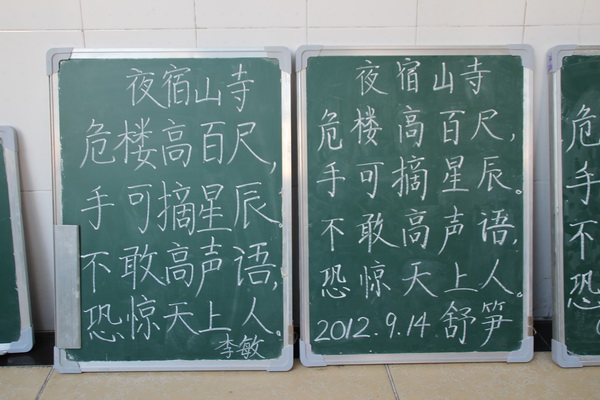 夜宿山寺
危楼高百尺,
手可摘星辰。
不敢高声语,
恐惊天上人。
李敏
夜宿山寺
危楼高百尺,
手可摘星辰。
不敢高声语,
恐惊天上人。
2012.9.14 舒笋
危
手
不
恐